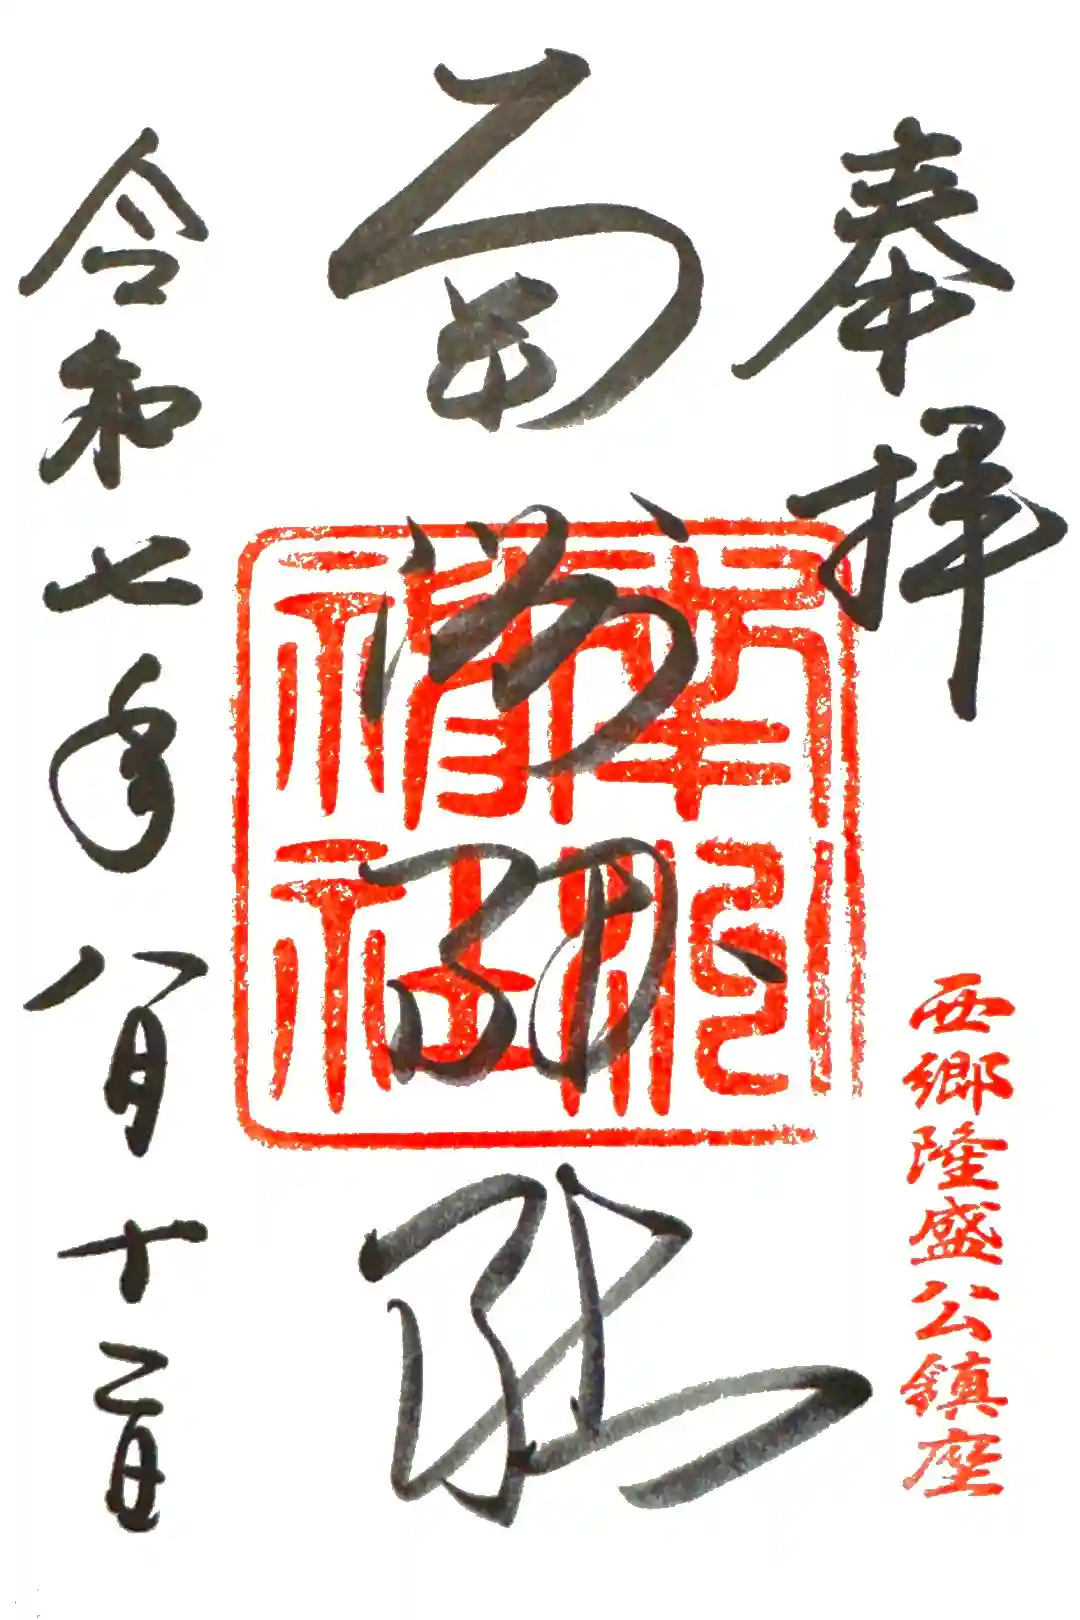 奉拝
西郷隆盛公鎮座
南洲神社
南洲神社
令和七年八月十二日